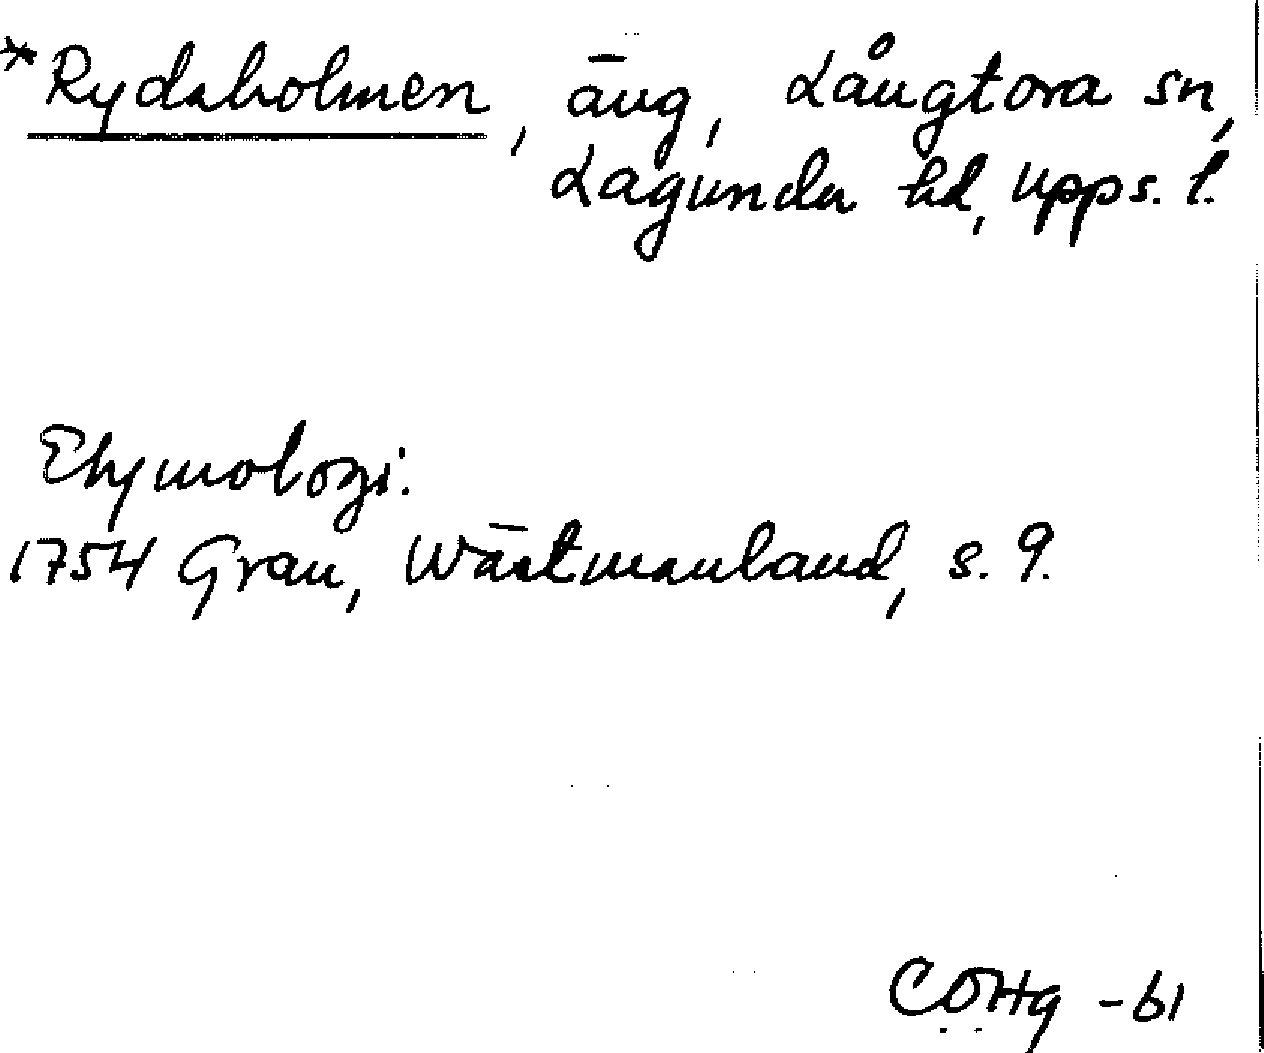 *Rydsholmen, äng, Långtora sn,
Lagunda hd, Upps. l.
Etymologi:
1754 Grau, Wästmanland, s. 9.
-61